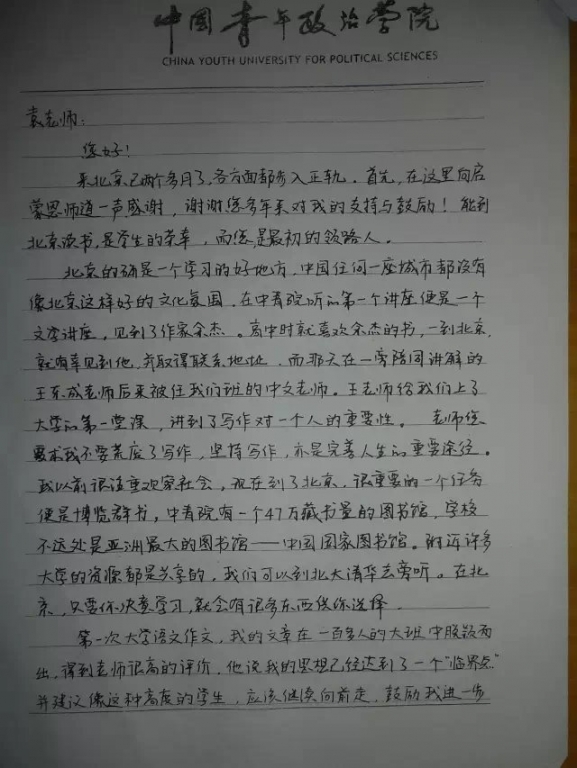 中国青年政治学院
CHINA YOUTH UNIVERSITY FOR POLITICAL SCIENCES
袁老师：
您好！
来北京已两个多月了，各方面都步入正轨。首先，在这里向启
蒙恩师道一声感谢，谢谢您多年来对我的支持与鼓励！能到
北京读书，是学生的荣幸，而您是最初的领路人。
北京的确是一个学习的好地方，中国任何一座城市都没有
像北京这样好的文化氛围。在中青院听的第一个讲座便是一个
文学讲座，见到了作家余杰。高中时就喜欢余杰的书，一到北京，
就有幸见到他，并取得联系地址。而那天在一旁陪同讲解的
王东成老师后来被任我们班的中文老师。王老师给我们上了
大学的第一堂课，讲到了写作对一个人的重要性。 老师您
要求我不要荒废了写作，坚持写作，亦是完善人生的重要途径。
我以前很注重观察社会，现在到了北京，很重要的一个任务
便是博览群书，中青院有一个47万藏书量的图书馆，学校
不远处是亚洲最大的图书馆——中国国家图书馆。附近许多
大学的资源都是共享的，我们可以到北大清华去旁听。在北
京，只要你决意学习，就会有很多东西供你选择。
第一次大学语文作文，我的文章在一百多人的大班中脱颖而
出，得到老师很高的评价，他说我的思想已经达到了一个“临界点”
并建议像这种高度的学生，应该继续向前走，鼓励我进一步